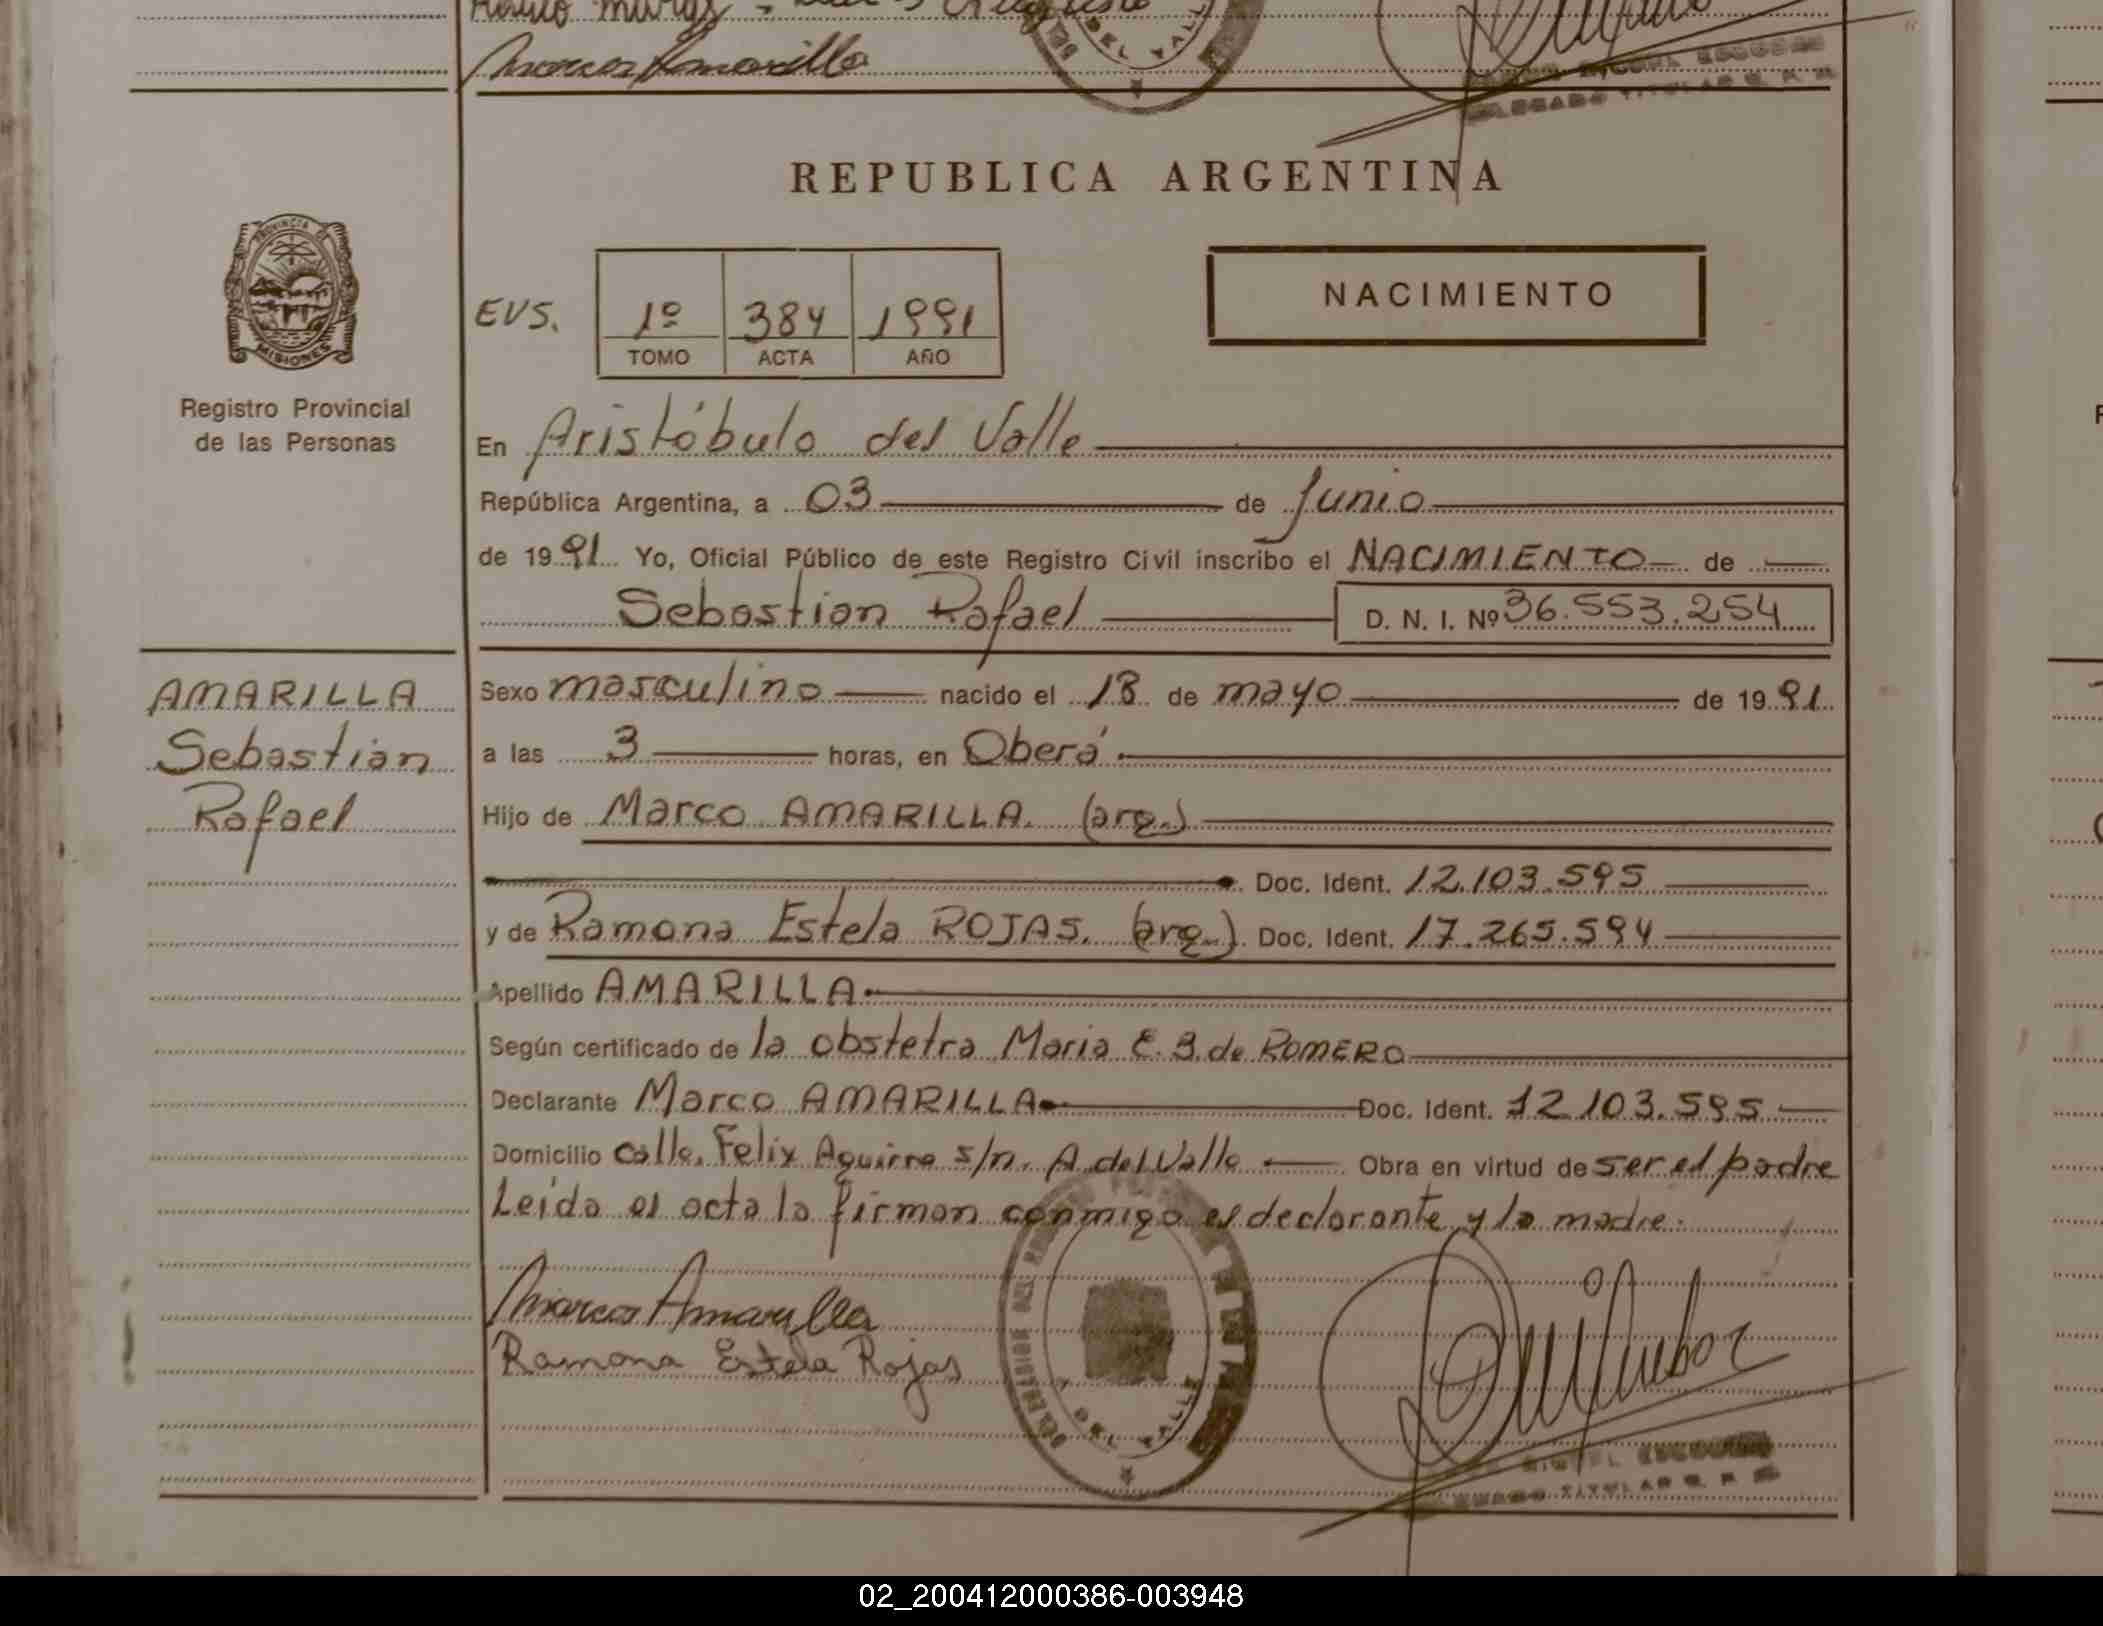 Marcos Amarilla
REPUBLICA ARGENTINA
PROVINCIA DE
MISIONES
Registro Provincial
de las Personas
EVS.
1º 384 1991
TOMO ACTA AÑO
NACIMIENTO
En Aristóbulo del Valle
República Argentina, a 03 de Junio
de 1991 Yo, Oficial Público de este Registro Civil inscribo el NACIMIENTO de
Sebastian Rafael D. N. I. Nº 36.553.254
AMARILLA
Sebastian
Rafael
Sexo masculino nacido el 18 de mayo de 1991
a las 3 horas, en Oberá
Hijo de Marco AMARILLA. (arg.)
Doc. Ident. 12.103.595
y de Ramona Estela ROJAS. (arg.). Doc. Ident. 17.265.594
Apellido AMARILLA
Según certificado de la obstetra Maria E. B. de ROMERO
Declarante Marco AMARILLA Doc. Ident. 12.103.595
Domicilio calle Felix Aguirre s/n. A. del Valle Obra en virtud de ser el padre
Leida el acta la firman conmigo el declarante y la madre.
Marcos Amarilla
Ramona Estela Rojas
DEL VALLE
TITULAR R. P.
02_200412000386-003948